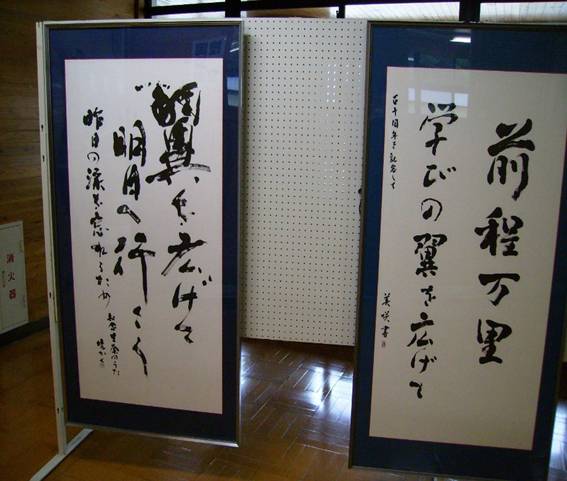 前程万里
学びの翼を広げて
百十周年を記念して
美咲書
翼を広げて
明日へ行こう
昨日の涙を忘れるため
消火器